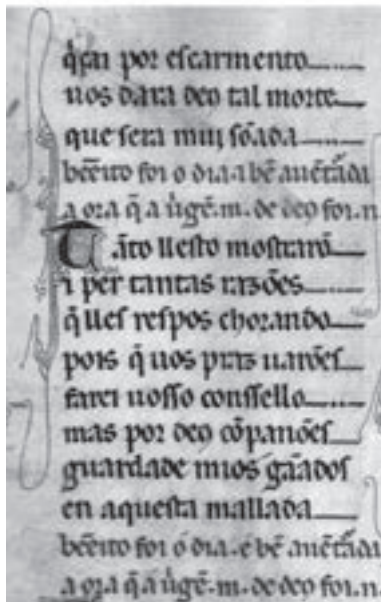 q̃çai por escarmento
uos dara deo tal morte
que sera mui sõada
bẽeito foi o dia . a bẽ auẽtada
a ora q̃ a uirgẽ . m . de deo foi . n
Tãto llesto mostrarõ
i per tantas razões
q̃ lles respos chorando
pois q̃ uos praz uarões
farei uosso conssello
mas por deo cõpanões
guardade mios gãados
en aquesta mallada
bẽeito foi o dia . e bẽ auẽtada
a ora q̃ a uirgẽ . m . de deo foi . n